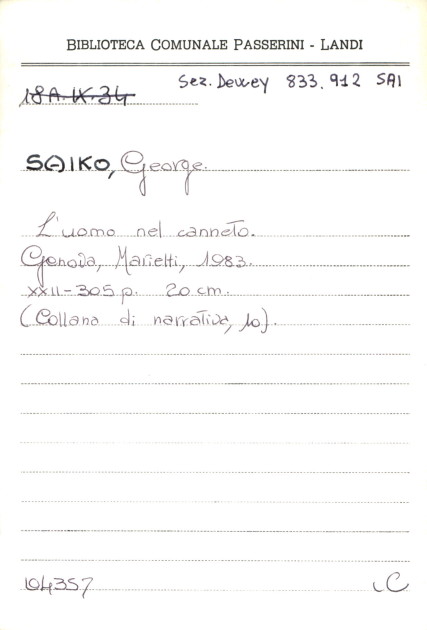 BIBLIOTECA COMUNALE PASSERINI - LANDI
Sez. Dewey 833.912 SAI
18A.IX.34
SAIKO, George.
L'uomo nel canneto.
Genova, Marietti, 1983.
XXII-305 p. 20 cm.
(Collana di narrativa, 10).
104357
C